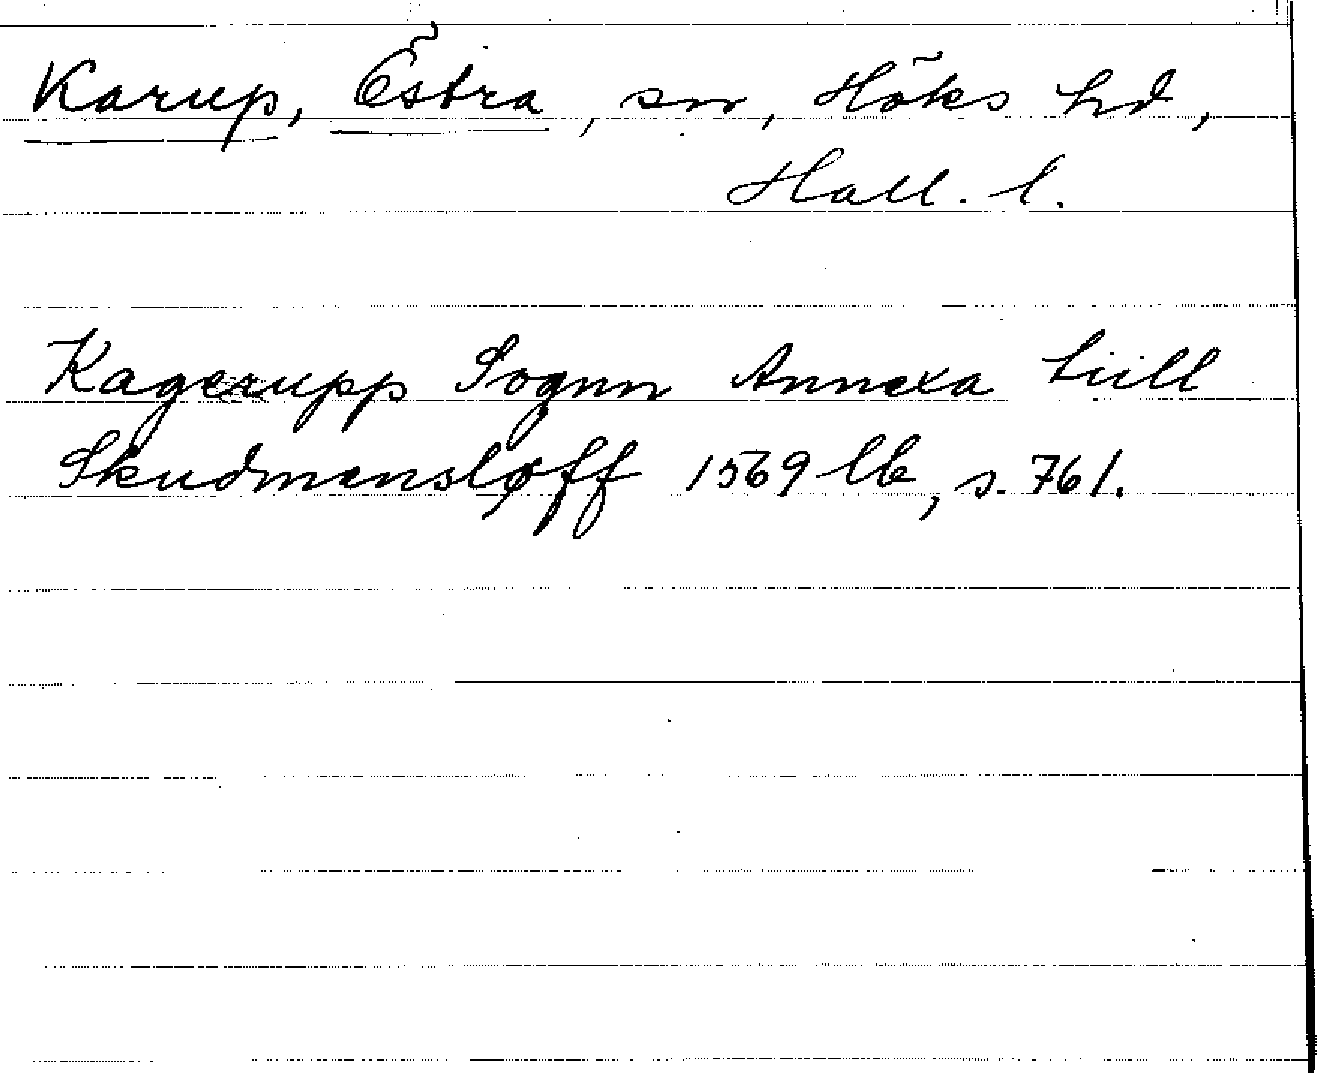 Karup, Östra, sn, Höks hd,
Hall. l.
Kagerupp Sognn Annexa tiill
Skudmensløff 1569 lb, s. 761.